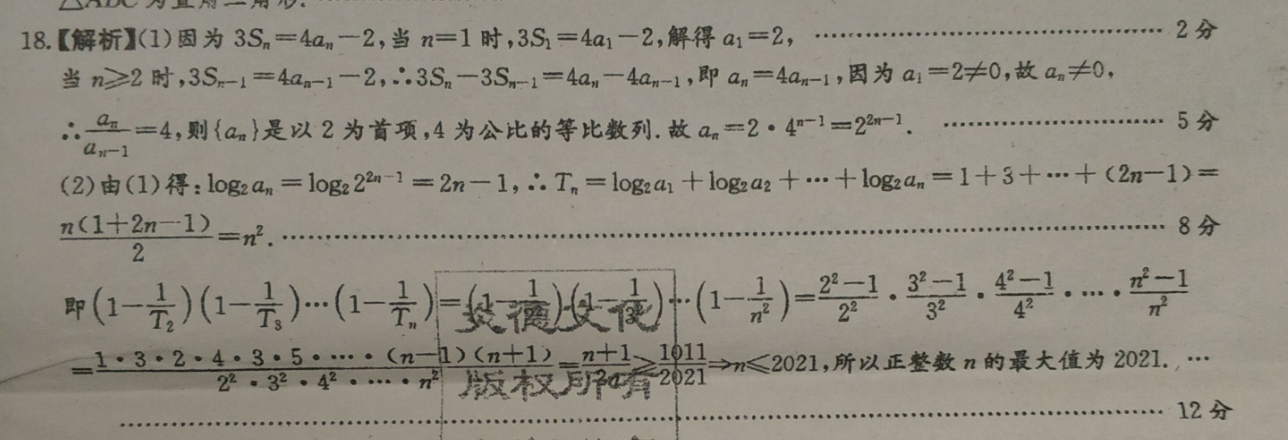 △ABC 为直角三角形.
18.【解析】(1)因为 3Sₙ=4aₙ-2,当 n=1 时,3S₁=4a₁-2,解得 a₁=2, ………… 2 分
当 n≥2 时,3Sₙ₋₁=4aₙ₋₁-2,∴3Sₙ-3Sₙ₋₁=4aₙ-4aₙ₋₁,即 aₙ=4aₙ₋₁,因为 a₁=2≠0,故 aₙ≠0,
∴aₙ/aₙ₋₁=4,则{aₙ}是以 2 为首项,4 为公比的等比数列.故 aₙ=2·4ⁿ⁻¹=2²ⁿ⁻¹. ………… 5 分
(2)由(1)得:log₂aₙ=log₂2²ⁿ⁻¹=2n-1,∴Tₙ=log₂a₁+log₂a₂+…+log₂aₙ=1+3+…+(2n-1)=
n(1+2n-1)/2=n². ………… 8 分
即(1-1/T₂)(1-1/T₃)…(1-1/Tₙ)=(1-1/2²)(1-1/3²)…(1-1/n²)=(2²-1)/2²·(3²-1)/3²·(4²-1)/4²·…·(n²-1)/n²
=1·3·2·4·3·5·…·(n-1)(n+1)/2²·3²·4²·…·n²=(n+1)/2n≥1011/2021⇒n≤2021,所以正整数 n 的最大值为 2021. …
………… 12 分
炎德文化
版权所有